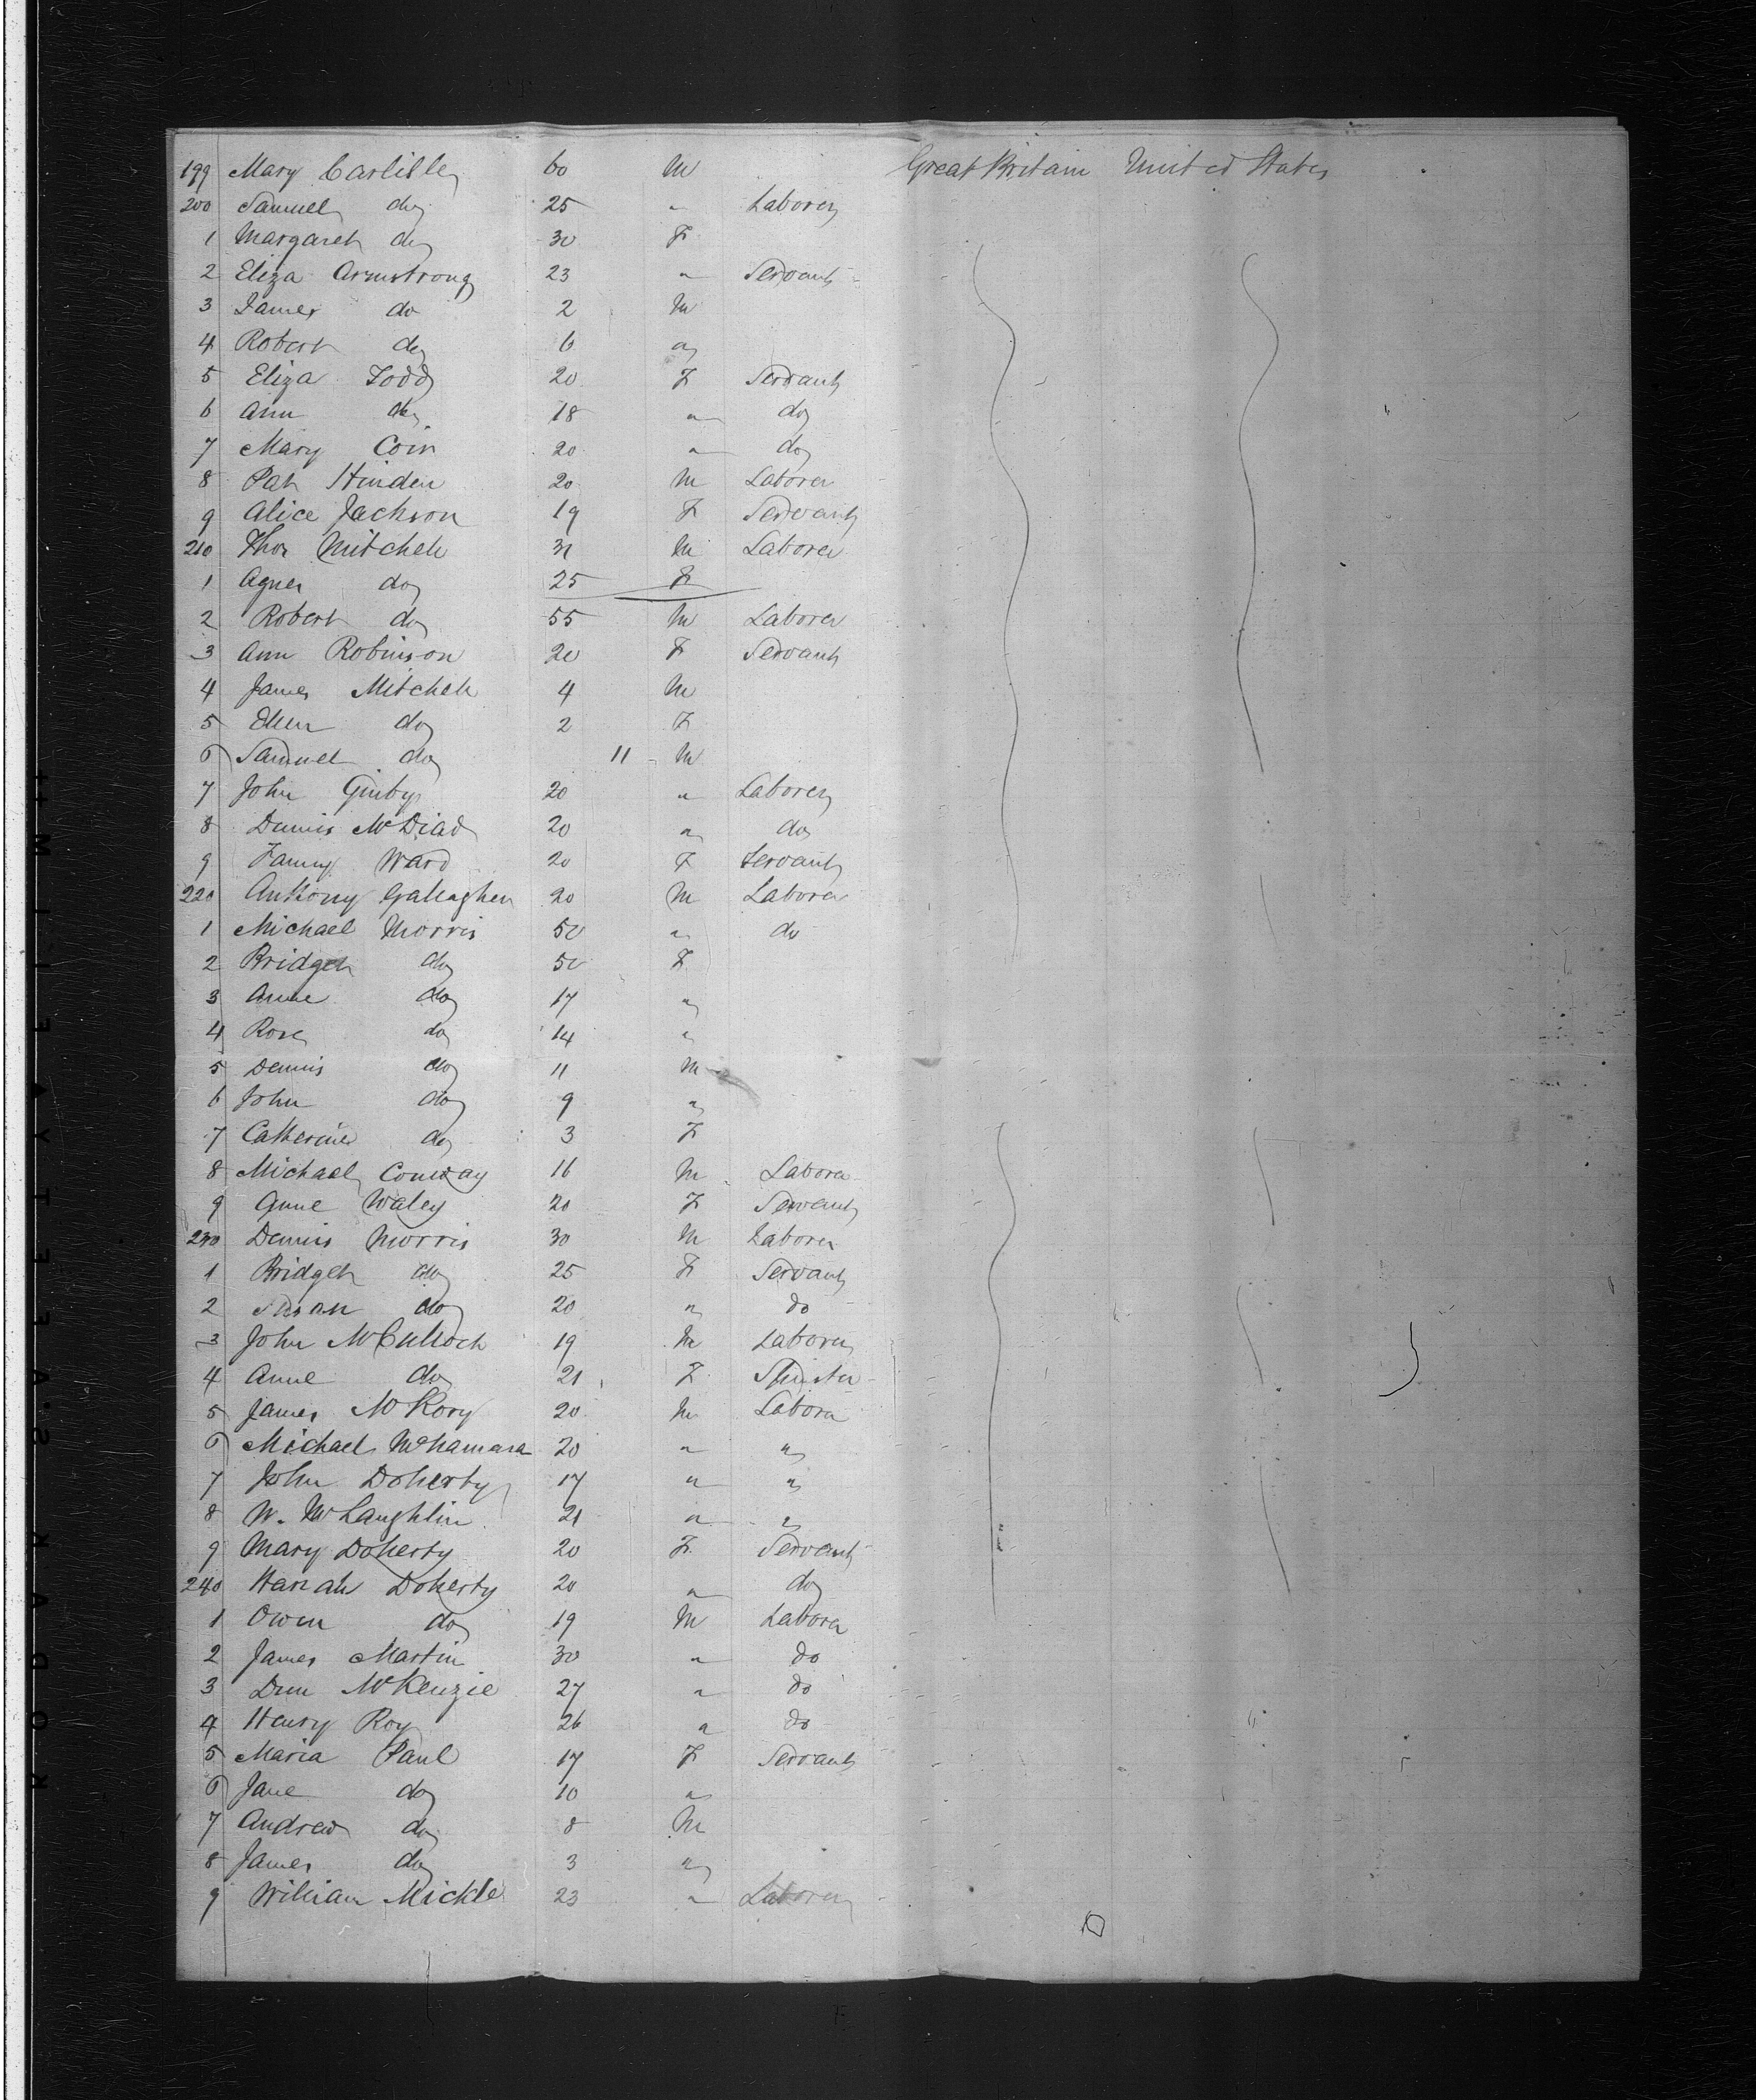 199 Mary Carlisle 60 M Great Britain United States
200 Samuel do 25 " Laborer
1 Margaret do 30 F
2 Eliza Armstrong 23 " Servant
3 James do 2 M
4 Robert do 6 "
5 Eliza Todd 20 F Servant
6 Ann do 18 " do
7 Mary Coin 20 " do
8 Pat Hinden 20 M Laborer
9 Alice Jackson 19 F Servant
210 Thos Mitchell 31 M Laborer
1 Agnes do 25 F
2 Robert do 55 M Laborer
3 Ann Robinson 20 F Servant
4 James Mitchell 4 M
5 Ellen do 2 F
6 Samuel do 11 M
7 John Ginby 20 " Laborer
8 Dennis McDiad 20 " do
9 Fanny Ward 20 F Servant
220 Anthony Gallagher 20 M Laborer
1 Michael Morris 50 " do
2 Bridget do 50 F
3 Anne do 17 "
4 Rose do 14 "
5 Dennis do 11 M
6 John do 9 "
7 Catherine do 3 F
8 Michael Conway 16 M Laborer
9 Anne Waley 20 F Servant
230 Dennis Morris 30 M Laborer
1 Bridget do 25 F Servant
2 Susan do 20 " do
3 John McCulloch 19 M Laborer
4 Anne do 21 F Spinster
5 James McRory 20 M Laborer
6 Michael McNamara 20 " "
7 John Doherty 17 " "
8 W. McLaughlin 21 " "
9 Mary Doherty 20 F Servant
240 Hanah Doherty 20 " do
1 Owen do 19 M Laborer
2 James Martin 30 " do
3 McKenzie 27 " do
4 Henry Roy 26 " do
5 Maria Paul 17 F Servant
6 Jane do 10 "
7 Andrew do 8 M
8 James do 3 "
9 William Mickle 23 " Laborer